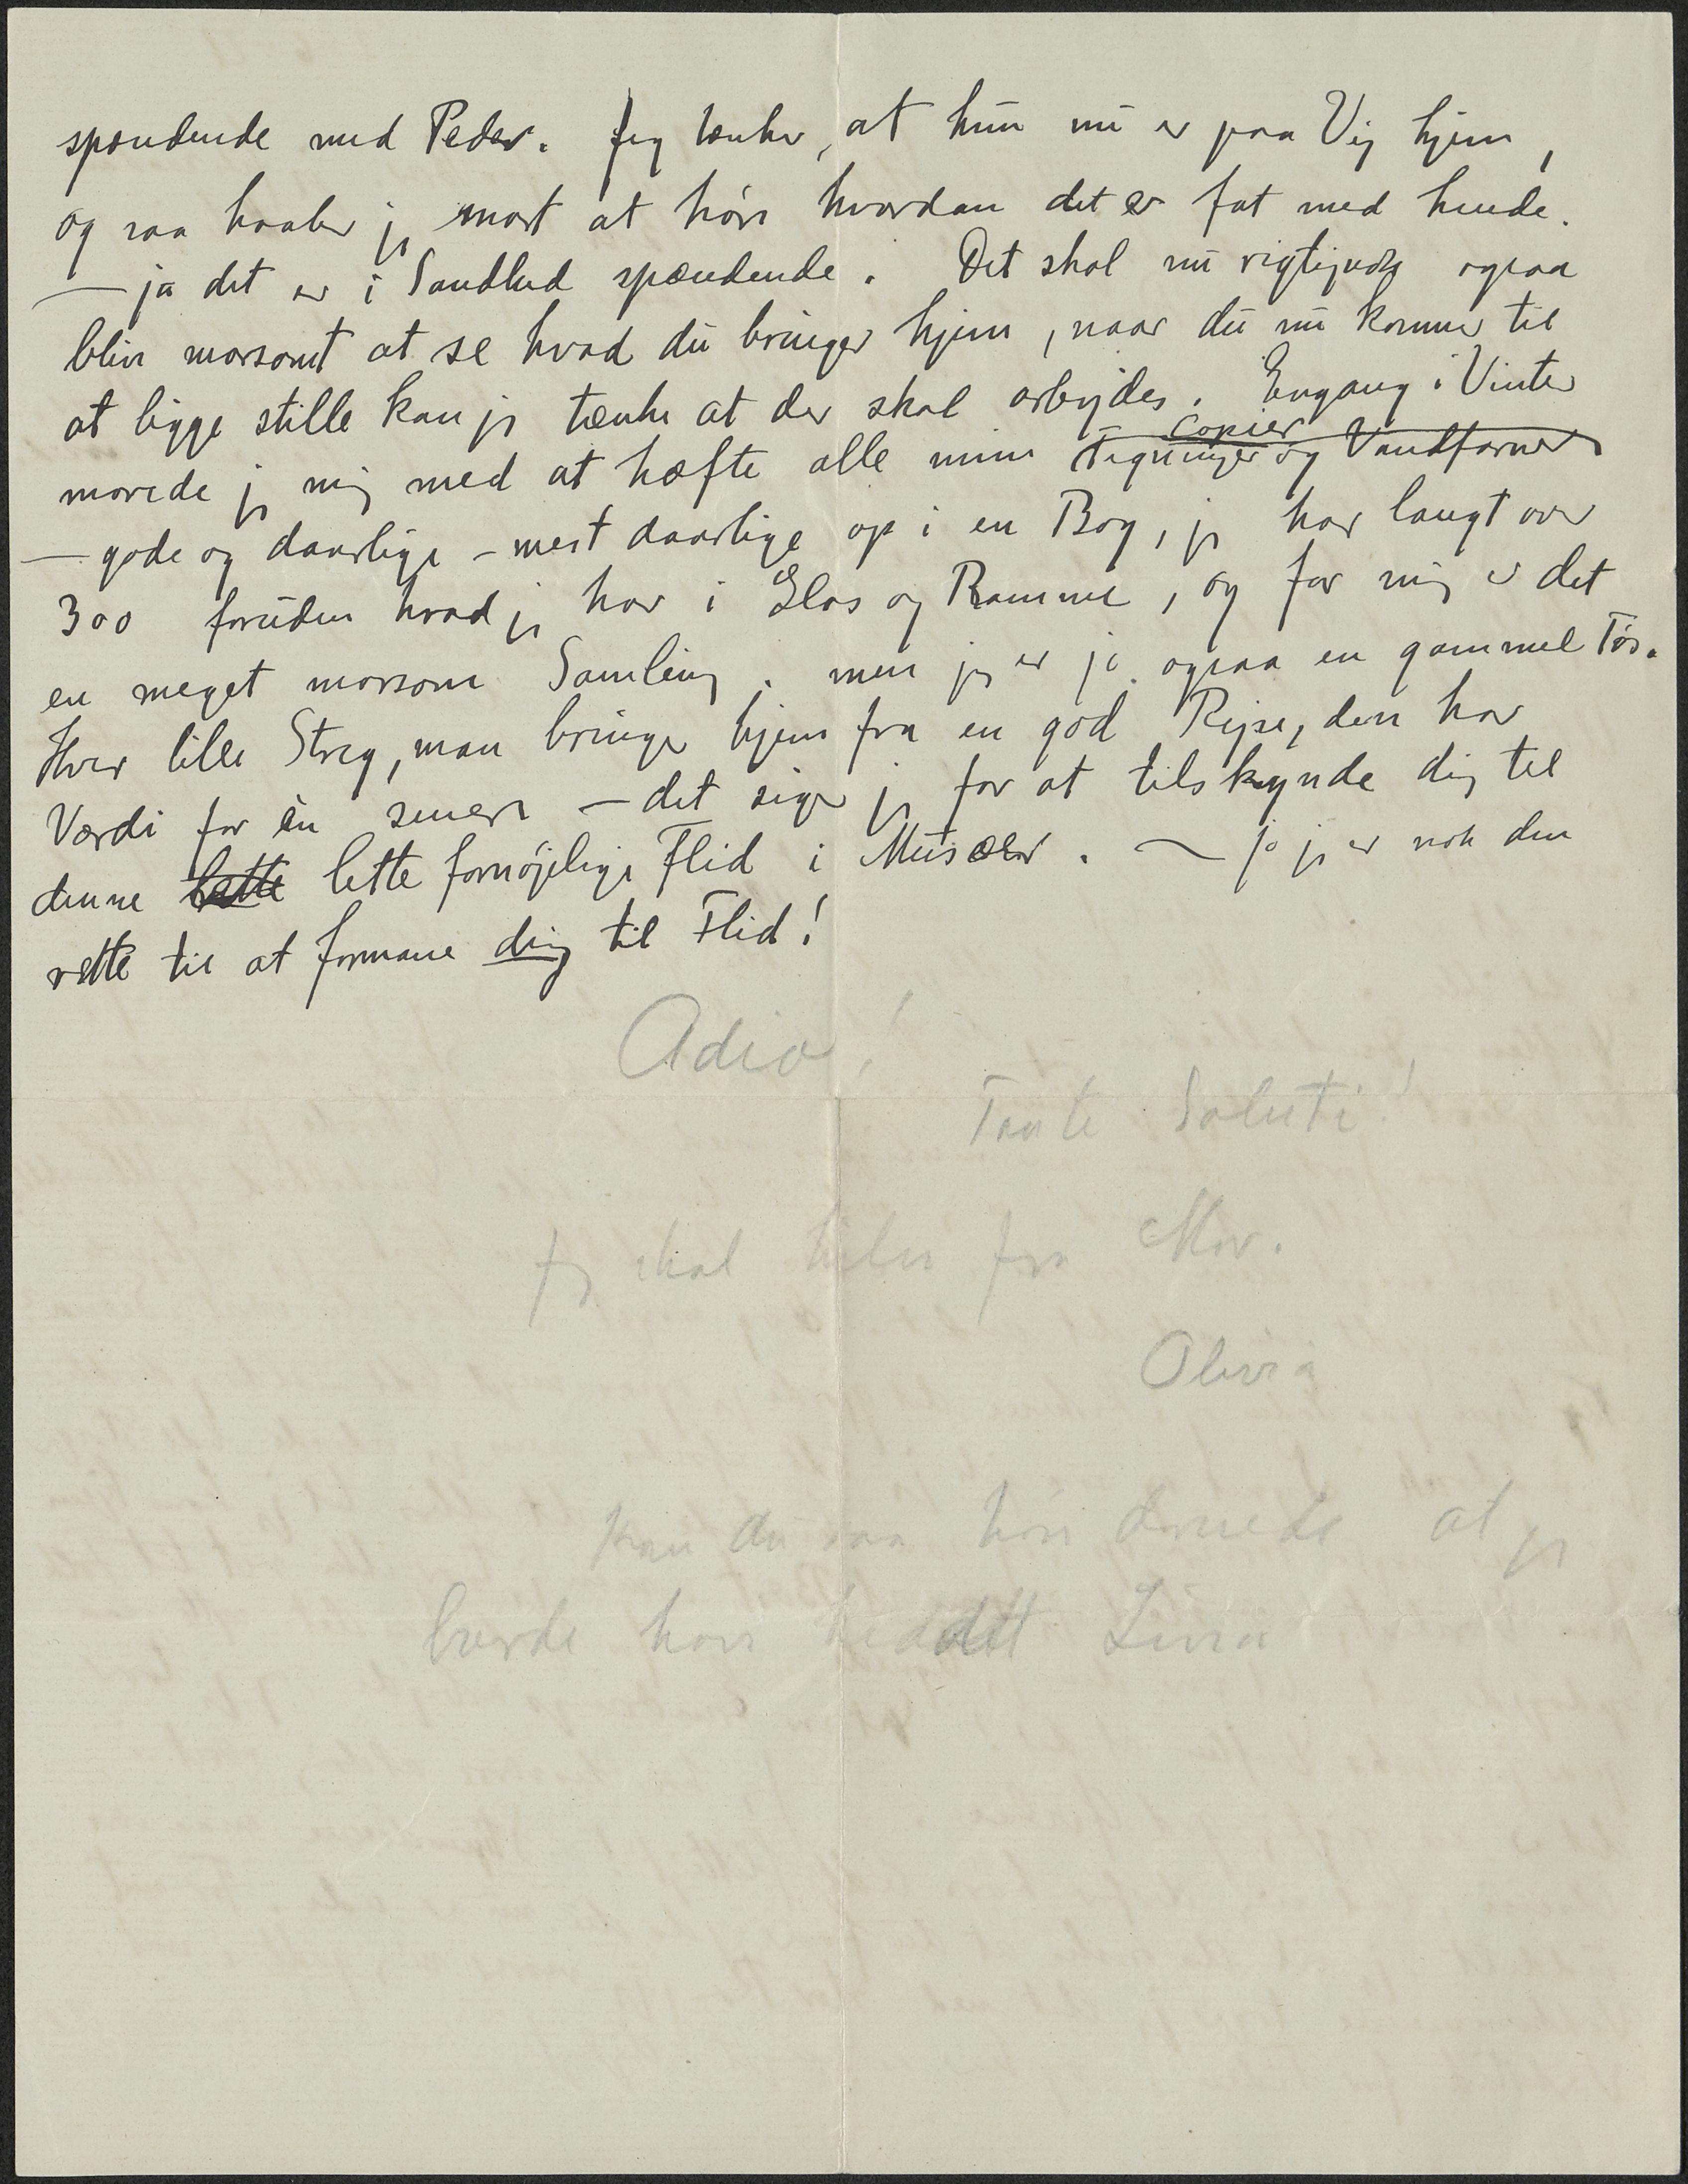 spændende med Peder. Jeg tænker, at hun nu er paa Vej hjem,
og saa haaber jeg snart at høre hvordan det er fat med hende.
— ja det er i Sandhed spændende. Det skal nu rigtignok ogsaa
blive morsomt at se hvad du bringer hjem, naar du nu kommer til
at ligge stille kan jeg tænke at der skal arbejdes. Engang i Vinter
morede jeg mig med at hæfte alle mine Tegninger og Vandfarver
Copier
— gode og daarlige – mest daarlige op i en Bog, jeg har langt over
300 foruden hvad jeg har i Glas og Ramme, og for mig er det
en meget morsom Samling. men jeg er jo ogsaa en gammel Tøs.
Hver lille Streg, man bringer hjem fra en god Rejse, den har
Værdi for én senere — det siger jeg for at tilskynde dig til
denne lette fornøjelige Flid i Musæer. — jo jeg er nok den
rette til at formane dig til Flid!
Adio!
Tante Saluti!
Jeg skal hilse fra Mor.
Olivia
Kan du saa høre dernede at jeg
burde have heddett Livia